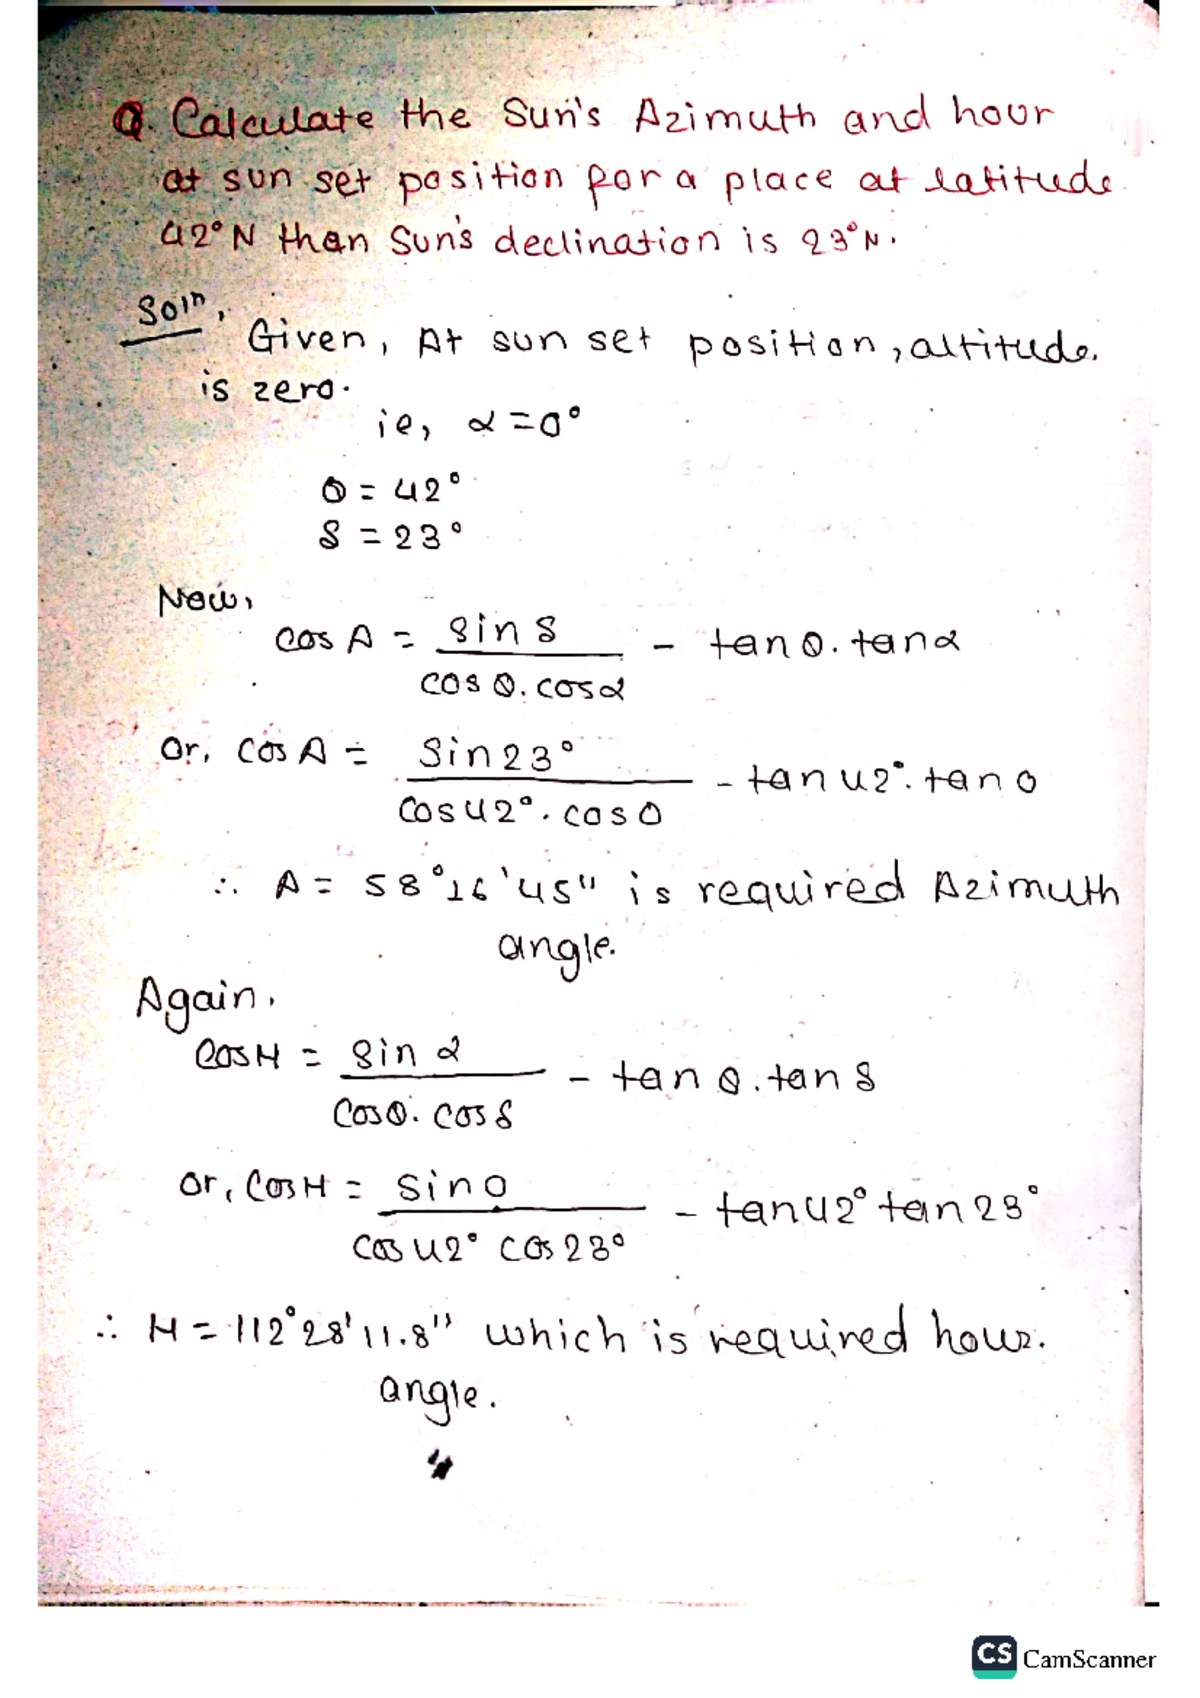 Q. Calculate the Sun's Azimuth and hour
at sun set position for a place at latitude
42°N than Sun's declination is 23°N.
Soln,
Given, At sun set position, altitude.
is zero.
ie, α = 0°
θ = 42°
δ = 23°
Now,
cos A = sin δ / cos θ. cos α - tan θ. tan α
Or, cos A = Sin 23° / cos 42°. cos 0 - tan 42°. tan 0
∴ A = 58°16'45" is required Azimuth
angle.
Again.
Cos H = sin α / Cos θ. cos δ - tan θ. tan δ
or, Cos H = sin 0 / cos 42° cos 23° - tan 42° tan 23°
∴ H = 112°28'11.8" which is required hour.
angle.
CS CamScanner